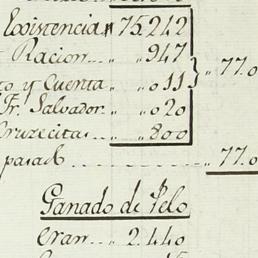 Existencia " 75.242
Racion... " 947
to y Cuenta " " 011 } " 77.0
Fr. Salvador. " " 020
Cruzecitas... " " 800
pasad... " 77.0
Ganado de Pelo
eran... " 2.440